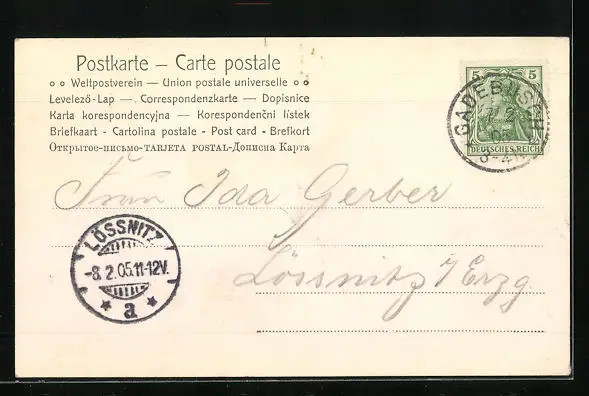 Postkarte — Carte postale
Weltpostverein — Union postale universelle
Levelező-Lap — Correspondenzkarte — Dopisnice
Karta korespondencyjna — Korespondenční lístek
Briefkaart - Cartolina postale - Post card - Brefkort
Открытое-письмо-TARJETA POSTAL-Дописна Карта
5 5
DEUTSCHES REICH
GADEBUSCH
7 2
05
3-4N
Frau Ida Gerber
Lössnitz i/Erzg
LÖSSNITZ
-8.2.05.11-12V.
* a *